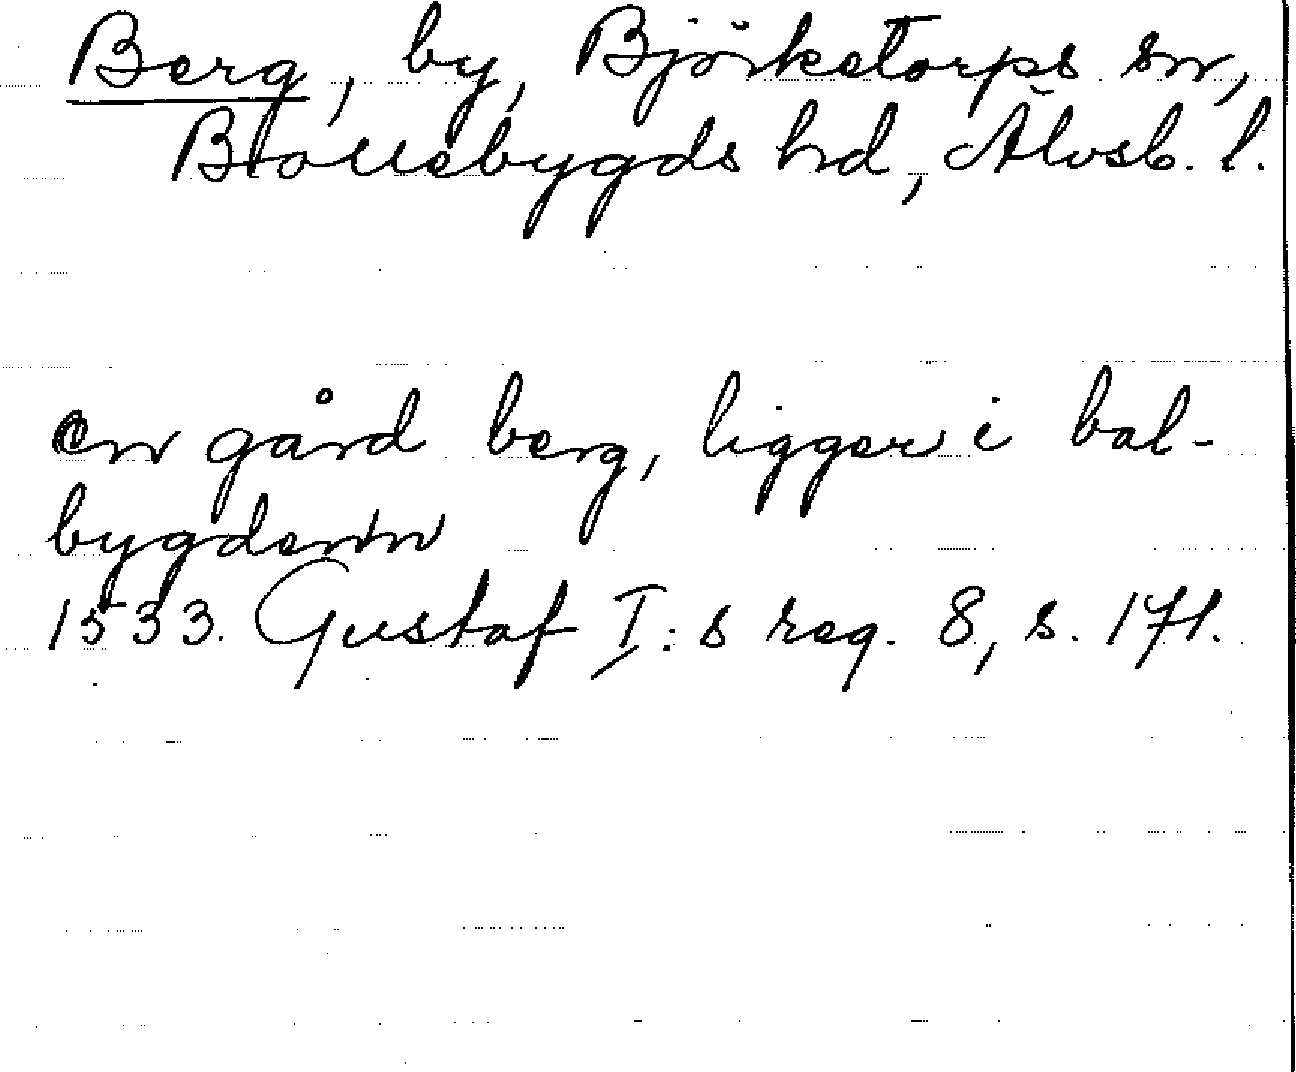 Berg, by, Björketorps sn,
Bollebygds hd, Älvsb. l.
en gård berg, ligger i bal-
bygdenn
1533. Gustaf I:s reg. 8, s. 171.